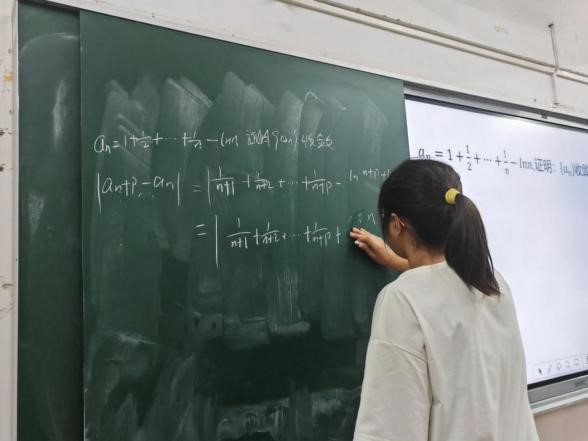 aₙ = 1 + 1/2 + ⋯ + 1/n − lnn 证明{aₙ}收敛
|aₙ₊ₚ − aₙ| = |1/(n+1) + 1/(n+2) + ⋯ + 1/(n+p) − ln n+p +
= | 1/(n+1) + 1/(n+2) + ⋯ + 1/(n+p) +
aₙ = 1 + 1/2 + ⋯ + 1/n − lnn,证明: {aₙ}收敛